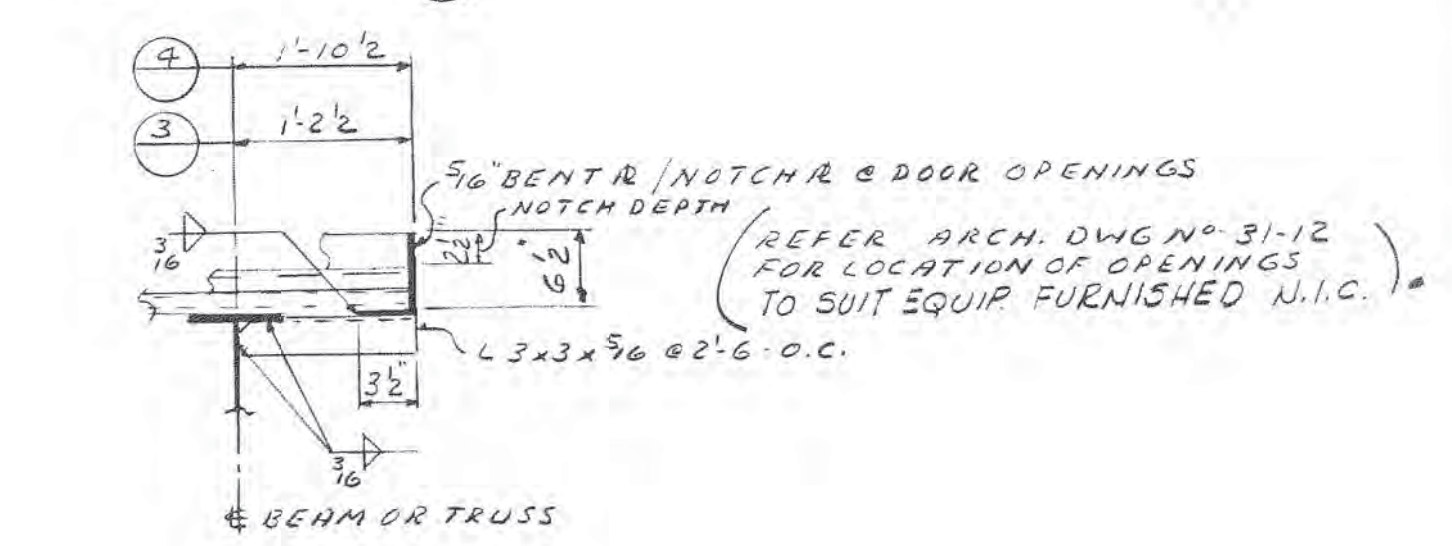 4
1'-10 1/2
3
1'-2 1/2
5/16" BENT ⅊ / NOTCH ⅊ @ DOOR OPENINGS
NOTCH DEPTH
3/16
2 1/2"
6 1/2"
(REFER ARCH. DWG Nº 31-12
FOR LOCATION OF OPENINGS
TO SUIT EQUIP. FURNISHED N.I.C.).
L 3x3x5/16 @ 2'-6 O.C.
3 1/2"
3/16
℄ BEAM OR TRUSS